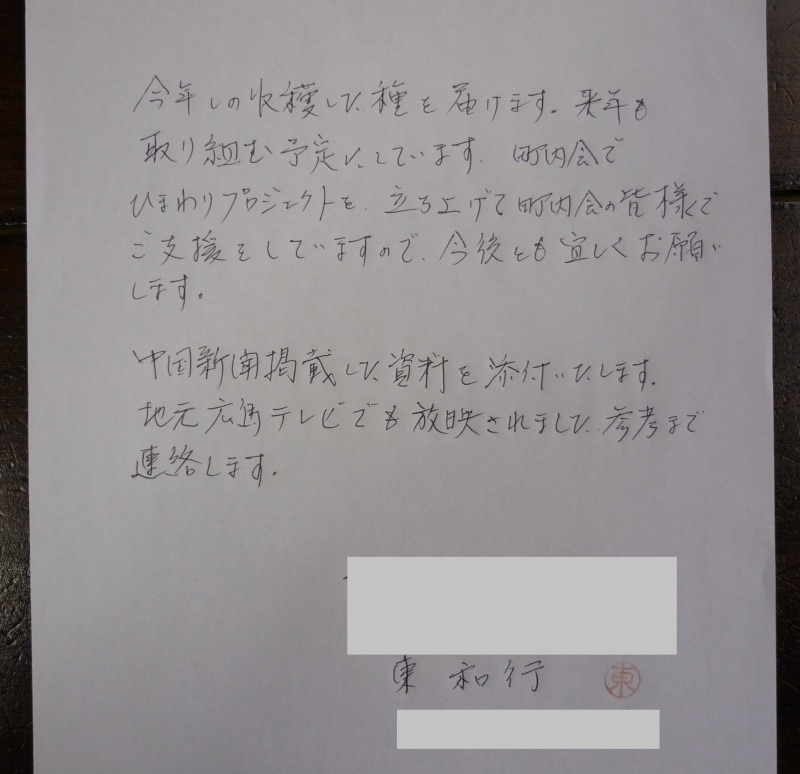 今年しの収穫した種を届けます。来年も
取り組む予定にしています. 町内会で
ひまわりプロジェクトを、立ち上げて町内会の皆様で
ご支援をしていますので、今後とも宜しくお願い
します。
中国新聞掲載した資料を添付いたします.
地元広島テレビでも放映されました. 参考まで
連絡します。
東 和行
東